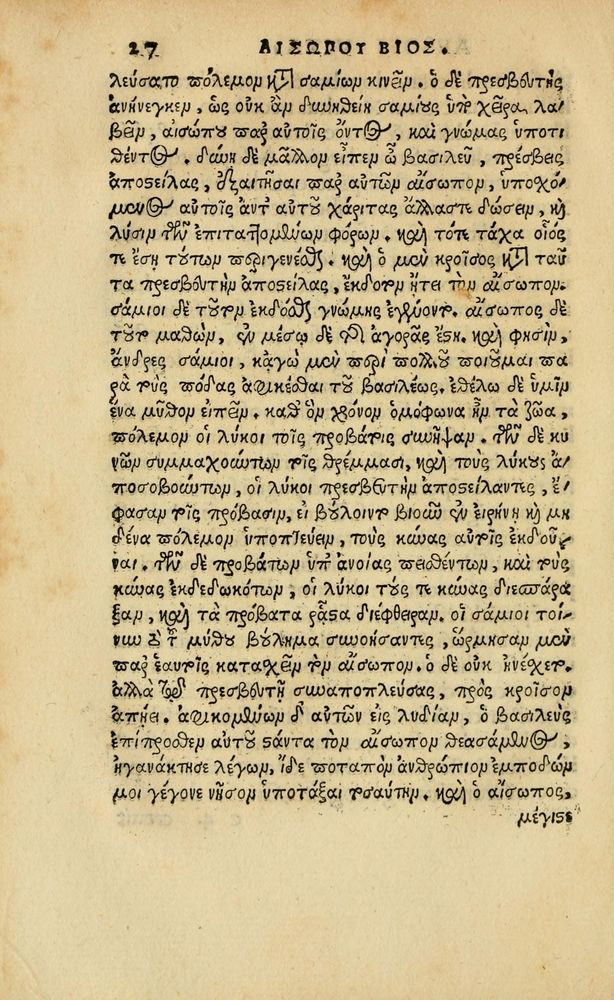 27 ΑΙΣΩΠΟΥ ΒΙΟΣ.
λεύσατο πόλεμον καὶ σαμίων κινεῖν. ὁ δὲ πρεσβευτὴς
ἀνήνεγκεν, ὡς οὐκ ἂν δυνηθείη σαμίους ὑπὸ χεῖρα λα-
βεῖν, αἰσώπου παρ' αὐτοῖς ὄντος, καὶ γνώμας ὑποτι
θέντος. δύνῃ δὲ μᾶλλον εἶπεν ὦ βασιλεῦ, πρέσβεις
ἀποστείλας, ἐξαιτῆσαι παρ' αὐτῶν αἴσωπον, ὑποσχό-
μενος αὐτοῖς ἀντ' αὐτοῦ χάριτας ἄλλας τε δώσειν, καὶ
λύσιν τῶν ἐπιταττομένων φόρων. καὶ τότε τάχα οἷός
τε ἔσῃ τούτων περιγενέσθαι. καὶ ὁ μὲν κροῖσος κατὰ ταῦ
τα πρεσβευτὴν ἀποστείλας, ἔκδοτον ᾔτει τὸν αἴσωπον.
σάμιοι δὲ τοῦτον ἐκδόσθαι γνώμης ἐγένοντο. αἴσωπος δὲ
τοῦτο μαθὼν, ἐν μέσῳ δὲ τῆς ἀγορᾶς ἔστη. καὶ φησὶν,
ἄνδρες σάμιοι, κἀγὼ μὲν περὶ πολλοῦ ποιοῦμαι πα
ρὰ τοὺς πόδας ἀφικέσθαι τοῦ βασιλέως. ἐθέλω δὲ ὑμῖν
ἕνα μῦθον εἰπεῖν. καθ' ὃν χρόνον ὁμόφωνα ἦν τὰ ζῶα,
πόλεμον οἱ λύκοι τοῖς προβάτοις συνῆψαν. τῶν δὲ κυ
νῶν συμμαχούντων τοῖς θρέμμασι, καὶ τοὺς λύκους ἀ-
ποσοβούντων, οἱ λύκοι πρεσβευτὴν ἀποστείλαντες, ἔ-
φασαν τοῖς πρόβασιν, εἰ βούλοιντο βιοῦν ἐν εἰρήνῃ καὶ μη
δένα πόλεμον ὑποπτεύειν, τοὺς κύνας αὐτοῖς ἐκδοῦ-
ναι. τῶν δὲ προβάτων ὑπ' ἀνοίας πεισθέντων, καὶ τοὺς
κύνας ἐκδεδωκότων, οἱ λύκοι τούς τε κύνας διεσπάρα
ξαν, καὶ τὰ πρόβατα ῥᾷστα διέφθειραν. οἱ σάμιοι τοί-
νυν τὸ τοῦ μύθου βούλημα συννοήσαντες, ὥρμησαν μὲν
παρ' ἑαυτοῖς κατασχεῖν τὸν αἴσωπον. ὁ δὲ οὐκ ἠνέσχετο.
ἀλλὰ τῷ πρεσβευτῇ συναποπλεύσας, πρὸς κροῖσον
ἀπῄει. ἀφικομένων δ' αὐτῶν εἰς λυδίαν, ὁ βασιλεὺς
ἐπίπροσθεν αὐτοῦ στάντα τὸν αἴσωπον θεασάμενος,
ἠγανάκτησε λέγων, ἴδε ποταπὸν ἀνθρώπιον ἐμποδὼν
μοι γέγονε νῆσον ὑποτάξαι τοσαύτην. καὶ ὁ αἴσωπος,
μέγιστε